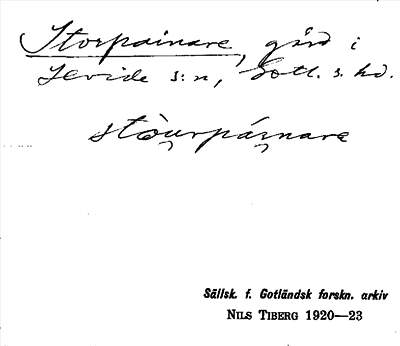 Storpainare, gård i
Levide s:n, Gotl. s. hd.
stòurpárnare
Sällsk. f. Gotländsk forskn. arkiv
NILS TIBERG 1920—23